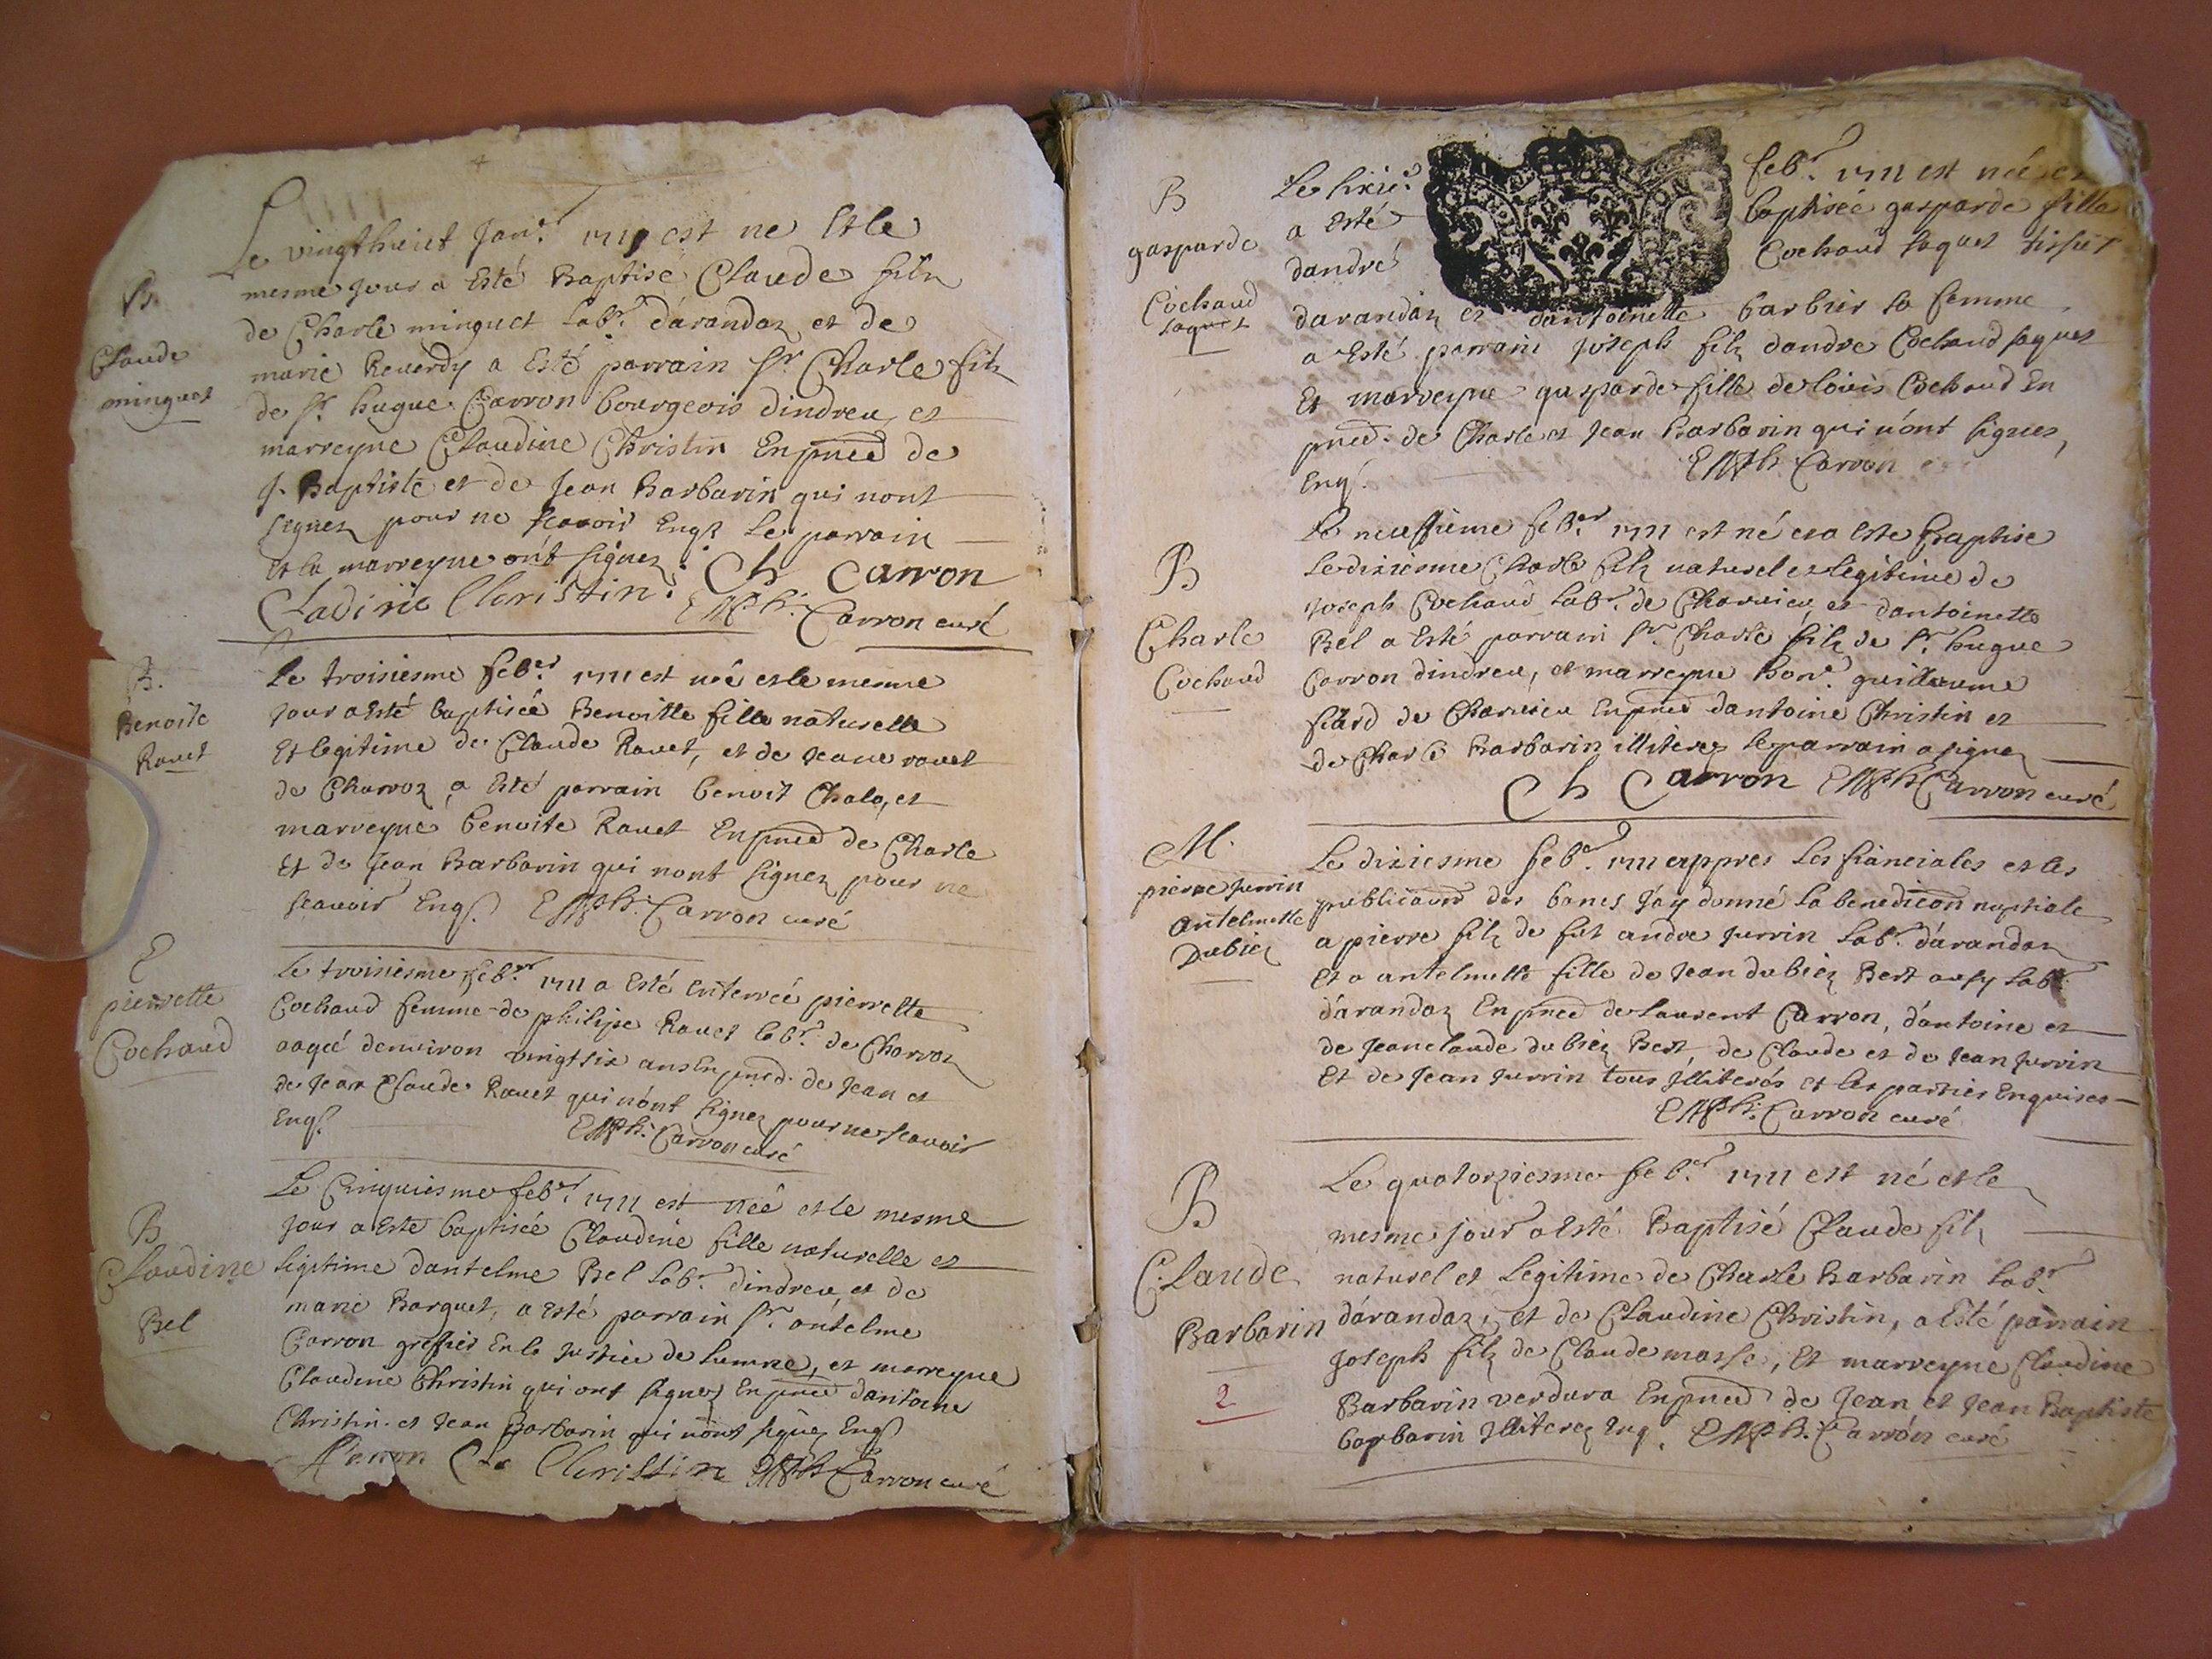 B.
Claude
minguet
Le vingthuict Janr. 1711 est ne Et le
mesme jour a Esté Baptisé Claude filz
de Charle minguet labr. d'arandaz et de
marie Reuerdy a Esté parrain sr. Charle filz
de sr. hugue Carron bourgeois dindreu et
marreyne Claudine Christin En pnce de
J. Baptiste et de Jean Barbarin qui nont
signez pour ne scavoir Enqs Le parrain
Et la marreyne ont signez.
Ch Carron
Cladine Christin.
Carron curé
B.
Benoite
Rauet
Le troisiesme feber. 1711 est née et le mesme
Jour a esté baptisée Benoitte fille naturelle
Et legitime de Claude Rauet, et de Jeane rauet
de Charvoz a Esté parrain benoit Chalo, et
marreyne benoite Rauet En pnce de Charle
Et de Jean Barbarin qui nont signez pour ne
scauoir Enqs Carron curé
E
pierrette
Cochaud
Le troisiesme febver. 1711 a Esté enterreé pierrette
Cochaud femme de philipe Rauet labr. de Charvoz
aageé denviron vingtsix ans En pnce. de Jean et
de Jean Claude Rauet qui nónt signez pour ne scavoir
Enqs. Carron curé
B
Claudine
Bel
Le Cinquiesme feber. 1711 est neé et le mesme
Jour a Esté baptisée Claudine fille naturelle et
legitime dantelme Bel labr. dindreu et de
marie Barquet, a esté parrain sr. antelme
Carron greffier En la Justice de Lumne, et marreyne
Claudine Christin qui ont signez En pnce dantoine
Christin et Jean Barbarin qui nónt signez Enqs
Christin Carron curé
B
gasparde
Cochaud
saquet
Le sixie. febr. 1711 est née et
a Esté baptisée gasparde fille
dandré Cochaud saquet tissur
darandaz et dantoinette barbier sa femme
a Esté parrain Joseph filz dandre Cochaud saquet
Et marreyne gasparde fille de louis Cochaud En
pnce. de Charle et Jean Barbarin qui nónt signez,
Enqs. Carron
B
Charle
Cochaud
Le neuffieme feber. 1711 est né et a Este Baptise
Le dixiesme Charle filz naturel et legitime de
Joseph Cochaud labr. de Charvieu et dantoinette
Bel a Esté parrain sr. Charle filz de sr. hugue
Carron dindreu, et marreyne hon. guillaume
fiard de Charvieu En pnce dantoine Christin et
de Charle Barbarin illiterez le parrain a signez
Ch Carron Carron curé
M.
pierre Jurrin
antelmette
Dubiez
Le dixiesme feber. 1711 appres Les fianciales et les
publicaons des bancs J'ay donné la benediction nuptiale
a pierre filz de fut andre Jurrin labr. d'arandaz
Et a antelmette fille de Jean dubiez Bert ausy labr.
d'arandaz En pnce de Laurent Carron, d'antoine et
de Jeanclaude dubiez Bert, de Claude et de Jean Jurrin
Et de Jean Jurrin tous Jlliterés et les parties Enquises
Carron curé
B
Claude
Barbarin
2
Le quatorziesme feber. 1711 est né et le
mesme jour a Esté Baptisé Claude filz
naturel et Legitime de Charle Barbarin labr.
d'arandaz, et de Claudine Christin, a Esté parrain
Joseph filz de Claude masse, Et marreyne Claudine
Barbarin verdura En pnce de Jean et Jean Baptiste
barbarin Jlliterez Enq. Carron curé